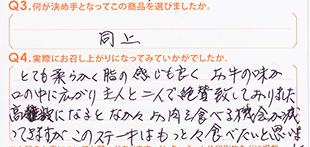 Q3.何が決め手となってこの商品を選びましたか。
同上
Q4.実際にお召し上がりになってみていかがでしたか。
とても柔らかく脂の感じも良く お牛の味が
口の中に広がり 主人と二人で絶賛致しておりました
高齢になるとなかなか お肉を食べる機会が減
ってきますが このステーキはもっと食べたいと思いま